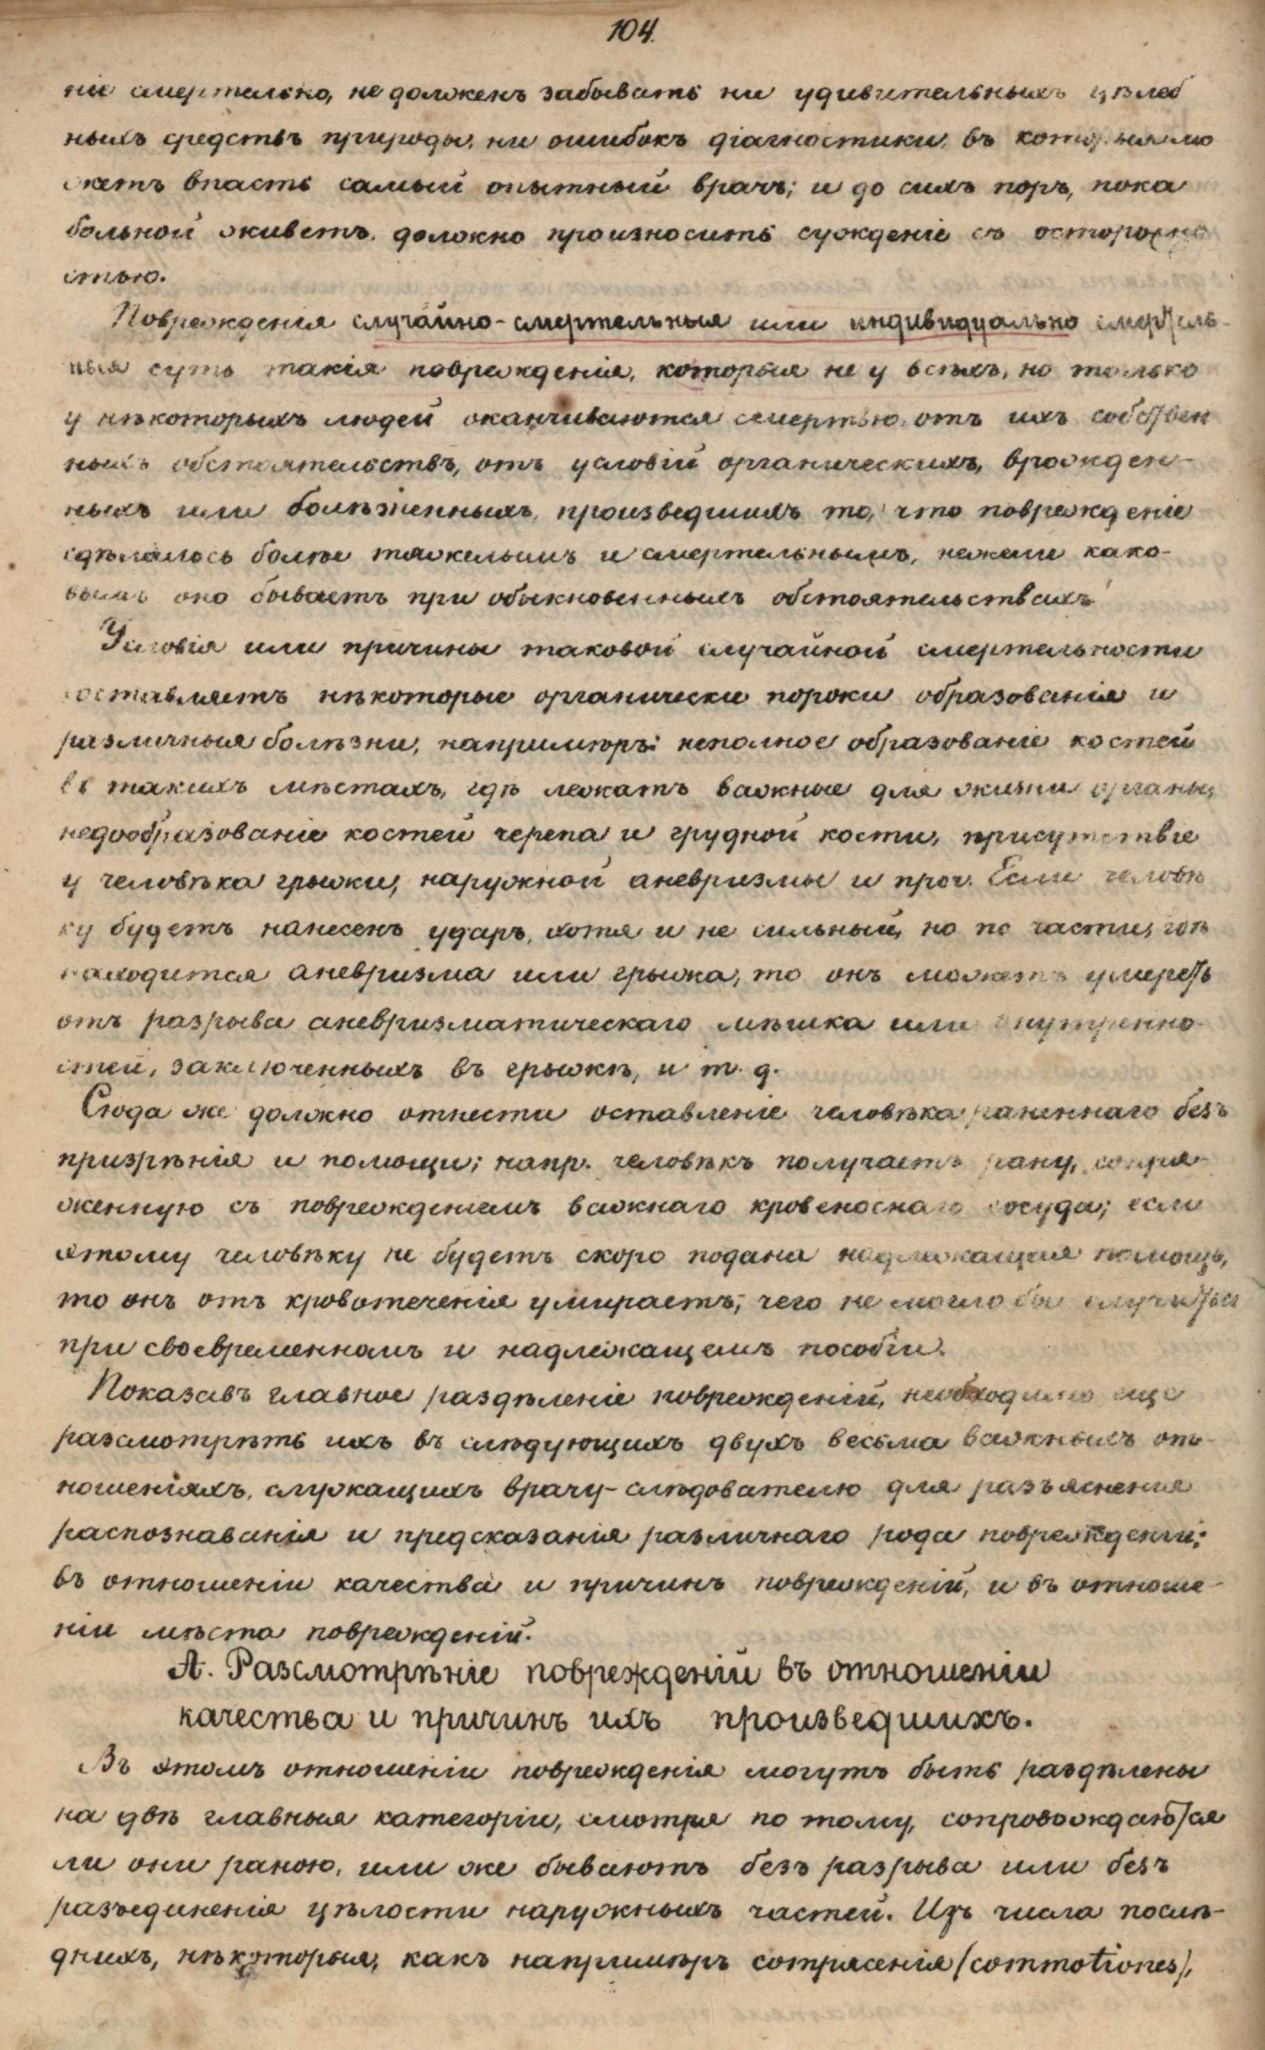 104.
ніе смертельно, не долженъ забывать ни удивительныхъ цѣлеб
ныхъ средствъ природы, ни ошибокъ діагностики, въ которыя мо
жетъ впасть самый опытный врачъ; и до сихъ поръ, пока
больной живетъ, должно произносить сужденіе съ осторожно
стью.
Поврежденія случайно-смертельныя или индивидуально смертель-
ныя суть такія поврежденія, которыя не у всѣхъ, но только
у нѣкоторыхъ людей оканчиваются смертью отъ ихъ собствен
ныхъ обстоятельствъ, отъ условій органическихъ, врожден-
ныхъ или болѣзненныхъ, произведшихъ то, что поврежденіе
сдѣлалось болѣе тяжелымъ и смертельнымъ, нежели како-
вымъ оно бываетъ при обыкновенныхъ обстоятельствахъ
Условія или причины таковой случайной смертельности
составляетъ нѣкоторые органически пороки образованія и
различныя болѣзни, напримѣръ: неполное образованіе костей
въ такихъ мѣстахъ, гдѣ лежатъ важные для жизни органы,
недообразованіе костей черепа и грудной кости, присутствіе
у человѣка грыжи, наружной аневризмы и проч. Если человѣ
ку будетъ нанесенъ ударъ, хотя и не сильный, но по части, гдѣ
находится аневризма или грыжа, то онъ можетъ умереть
отъ разрыва аневризматическаго мѣшка или внутренно-
стей, заключенныхъ въ грыжѣ, и т. д.
Сюда же должно отнести оставленіе человѣка раненнаго безъ
призрѣнія и помощи; напр. человѣкъ получаетъ рану, сопря-
женную съ поврежденіемъ важнаго кровеноснаго сосуда; если
этому человѣку не будетъ скоро подана надлежащая помощь,
то онъ отъ кровотеченія умираетъ, чего не могло бы случиться
при своевременномъ и надлежащемъ пособіи.
Показавъ главное раздѣленіе поврежденій, необходимо еще
разсмотрѣть ихъ въ слѣдующихъ двухъ весьма важныхъ от-
ношеніяхъ, служащихъ врачу-слѣдователю для разъясненія
распознаванія и предсказанія различнаго рода поврежденій:
въ отношеніи качества и причинъ поврежденій, и въ отноше-
ніи мѣста поврежденій.
А. Разсмотрѣніе поврежденій въ отношеніи
качества и причинъ ихъ произведшихъ.
Въ этомъ отношеніи поврежденія могутъ быть раздѣлены
на двѣ главныя категоріи, смотря по тому, сопровождаются
ли они раною, или же бываютъ безъ разрыва или безъ
разъединенія цѣлости наружныхъ частей. Изъ числа послѣ-
днихъ, нѣкоторыя, какъ напримѣръ сотрясенія (commotiones),